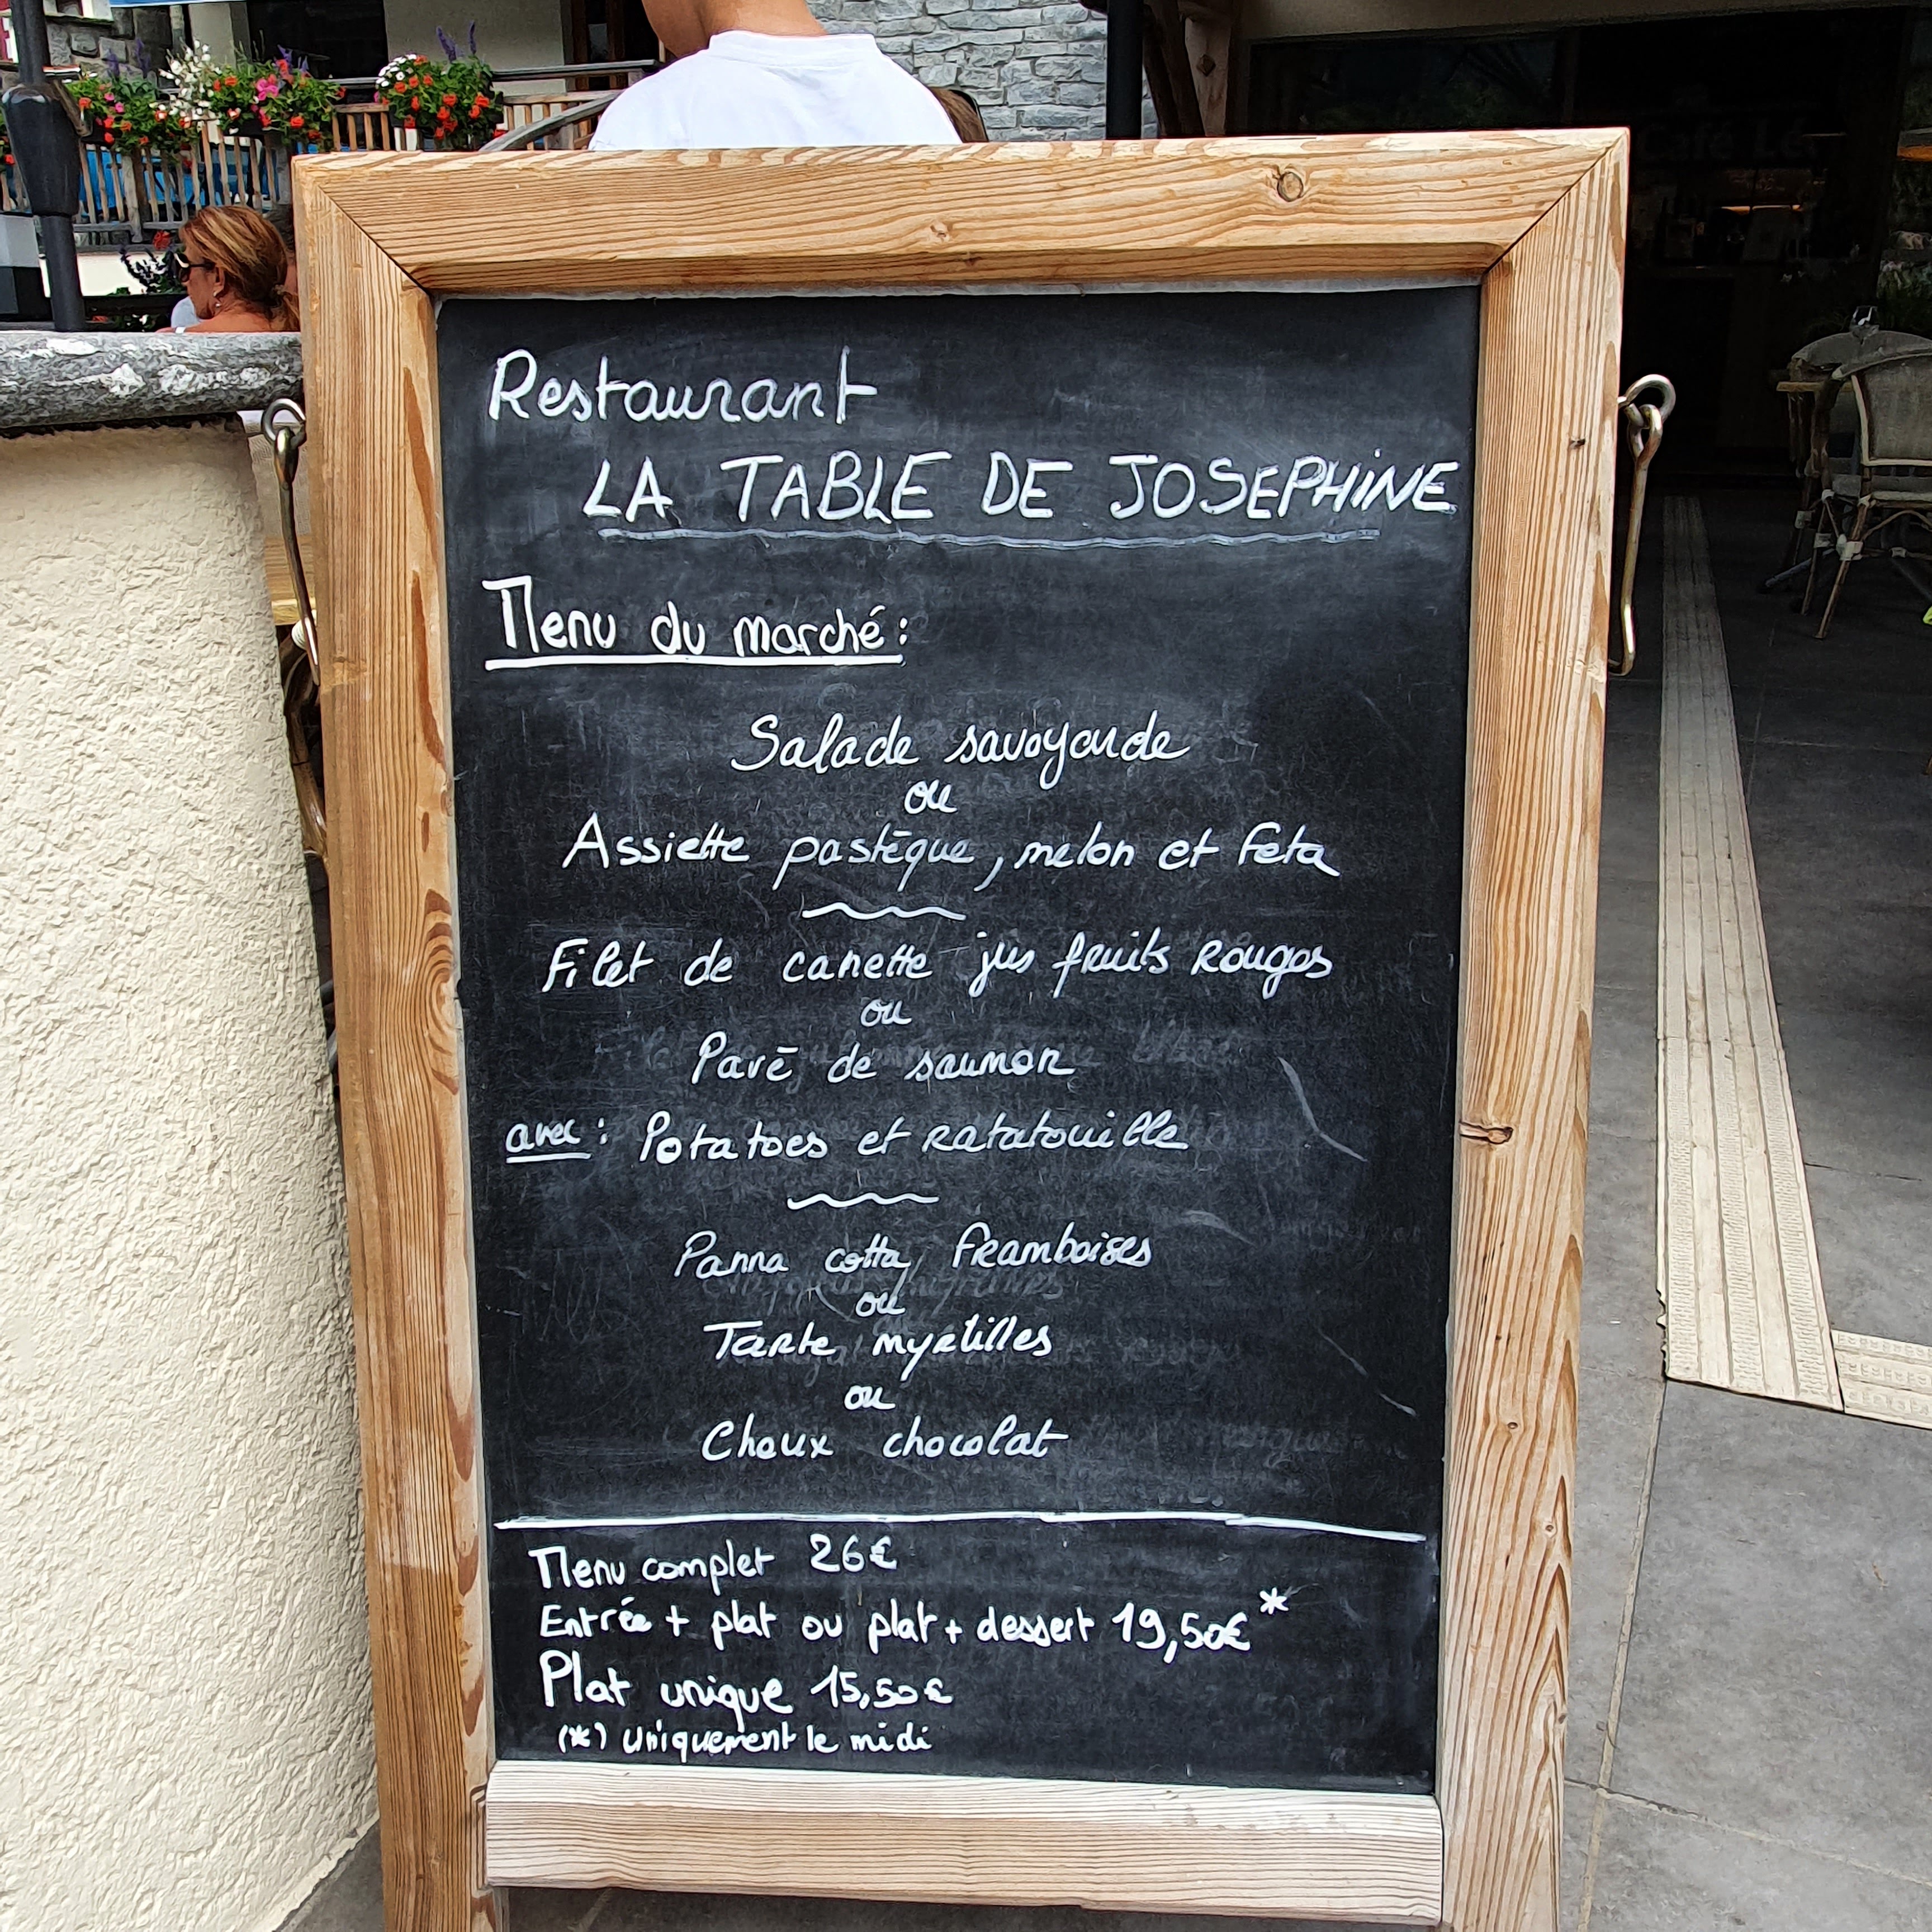 Café Lé
Restaurant
LA TABLE DE JOSEPHINE
Menu du marché:
Salade savoyarde
ou
Assiette pastèque, melon et feta
Filet de canette jus fruits Rouges
ou
Pavé de saumon
avec: Potatoes et Ratatouille
Panna cotta framboises
ou
Tarte myrtilles
ou
Choux chocolat
Menu complet 26€
Entrée + plat ou plat + dessert 19,50€*
Plat unique 15,50€
(*) Uniquement le midi